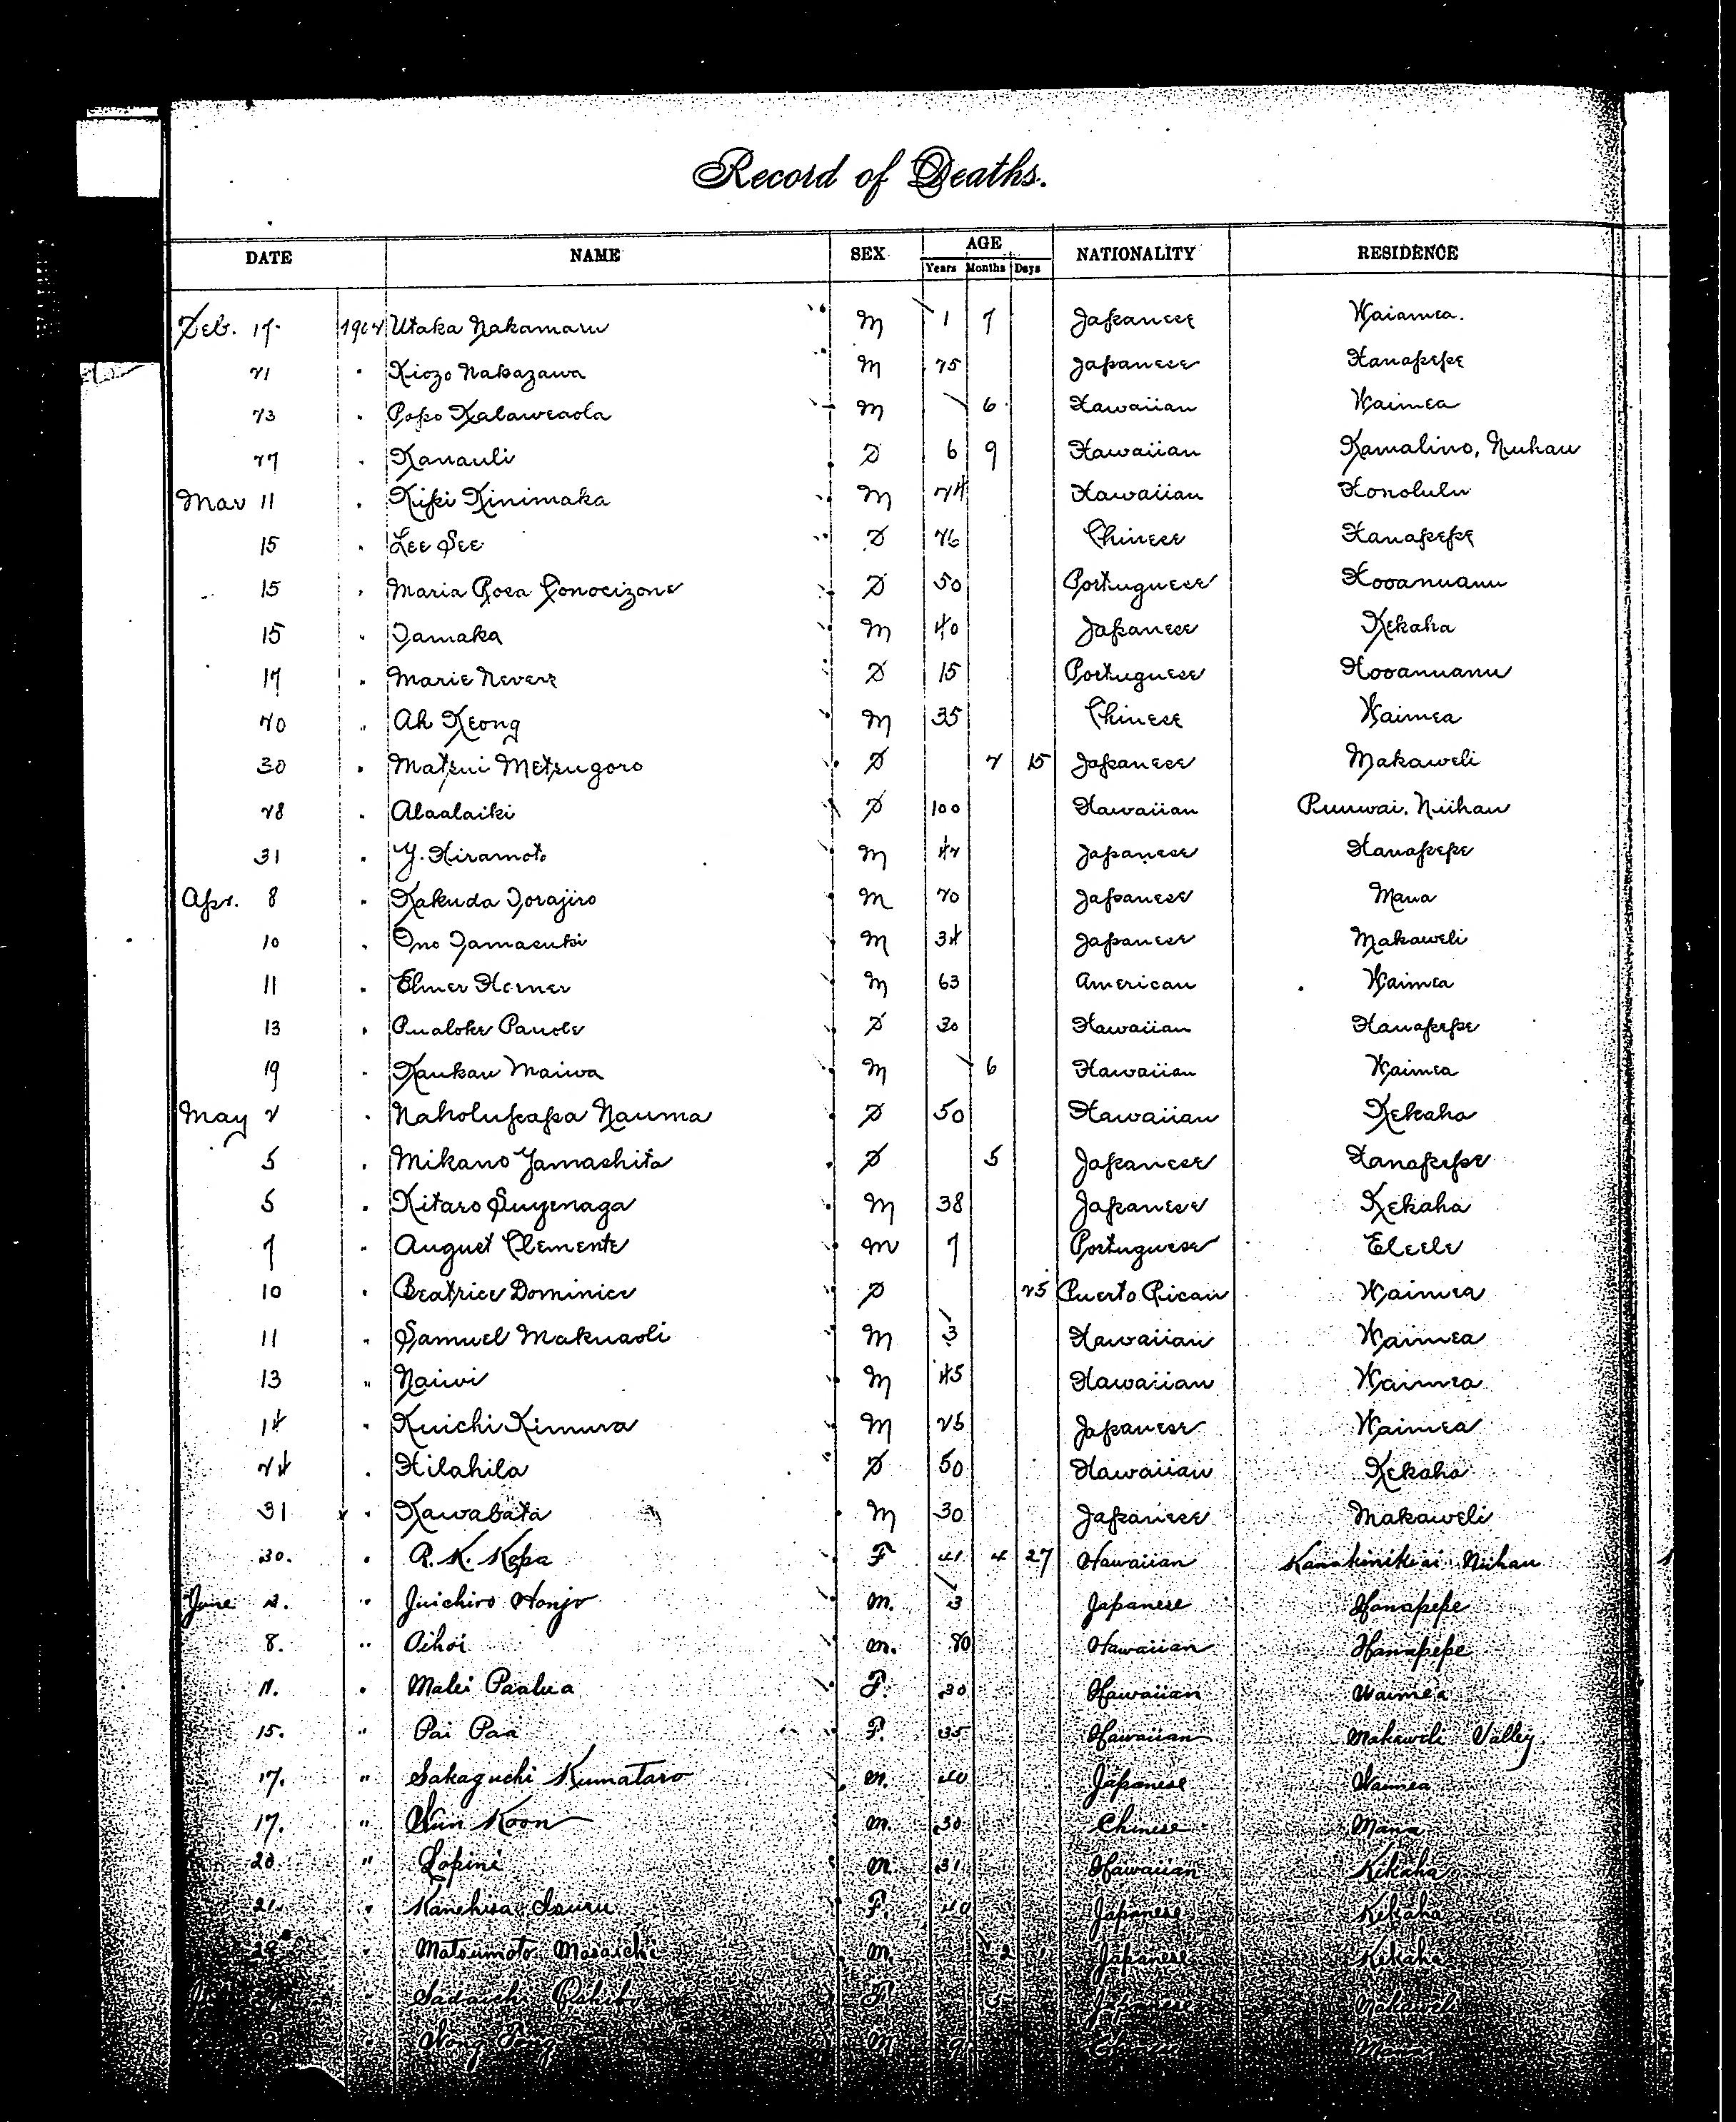 Record of Deaths.
DATE NAME SEX AGE NATIONALITY RESIDENCE
Years Months Days
Feb. 17. 1902 Utaka Nakamaru M 1 7 Japanese Waiamea.
21 " Kiozo Nakazawa M 25 Japanese Hanapepe
23 " Popo Kalaweaola M 6 Hawaiian Waimea
27 " Kanauli F 6 9 Hawaiian Kamalino, Niihau
Mar 11 " Kipi Kinimaka M 24 Hawaiian Honolulu
15 " Lee See F 26 Chinese Hanapepe
15 " Maria Rosa F 50 Portuguese Hooanuanu
15 " Tamaka M 40 Japanese Kekaha
17 " Marie Nevere F 15 Portuguese Hooanuanu
20 " Ah Keong M 35 Chinese Waimea
30 " Matsui Metsugoro F 2 15 Japanese Makaweli
28 " Alaalaiki F 100 Hawaiian Puuwai, Niihau
31 " Y. Hiramoto M 42 Japanese Hanapepe
Apr. 8 " Kakuda Torajiro M 20 Japanese Mana
10 " Ono Tamasuki M 34 Japanese Makaweli
11 " Elmer Horner M 63 American Waimea
13 " Pualoke Panole F 30 Hawaiian Hanapepe
19 " Kaukau Maiwa M 6 Hawaiian Waimea
May 2 " Naholupapa Nauma F 50 Hawaiian Kekaha
5 " Mikano Yamashita F 5 Japanese Hanapepe
5 " Kitaro Suyenaga M 38 Japanese Kekaha
7 " August Clemente M 7 Portuguese Eleele
10 " Beatrice Dominice F 25 Puerto Rican Waimea
11 " Samuel Makuaoli M 3 Hawaiian Waimea
13 " Naiwi M 45 Hawaiian Waimea
14 " Kuichi Kimura M 25 Japanese Waimea
24 " Hilahila F 50 Hawaiian Kekaha
31 " Kawabata M 30 Japanese Makaweli
30. " R. K. Kopa F 41 4 27 Hawaiian Niihau
June 2. " Juichiro Honjo M. 3 Japanese Hanapepe
8. " Aihoi M. 80 Hawaiian Hanapepe
11. " Malei Paalua F. 30 Hawaiian Waimea
15. " Pai Paa F. 35 Hawaiian Makaweli Valley
17. " Sakaguchi Kumataro M. 40 Japanese Waimea
17. " Wun Koon M. 30 Chinese Mana
20 " Lapini M. 31 Hawaiian Kekaha
21. " Kanehisa F. 40 Japanese Kekaha
" Matsumoto Masaichi M. 2 Japanese Kekaha
" F. Japanese Makaweli
" M Mana